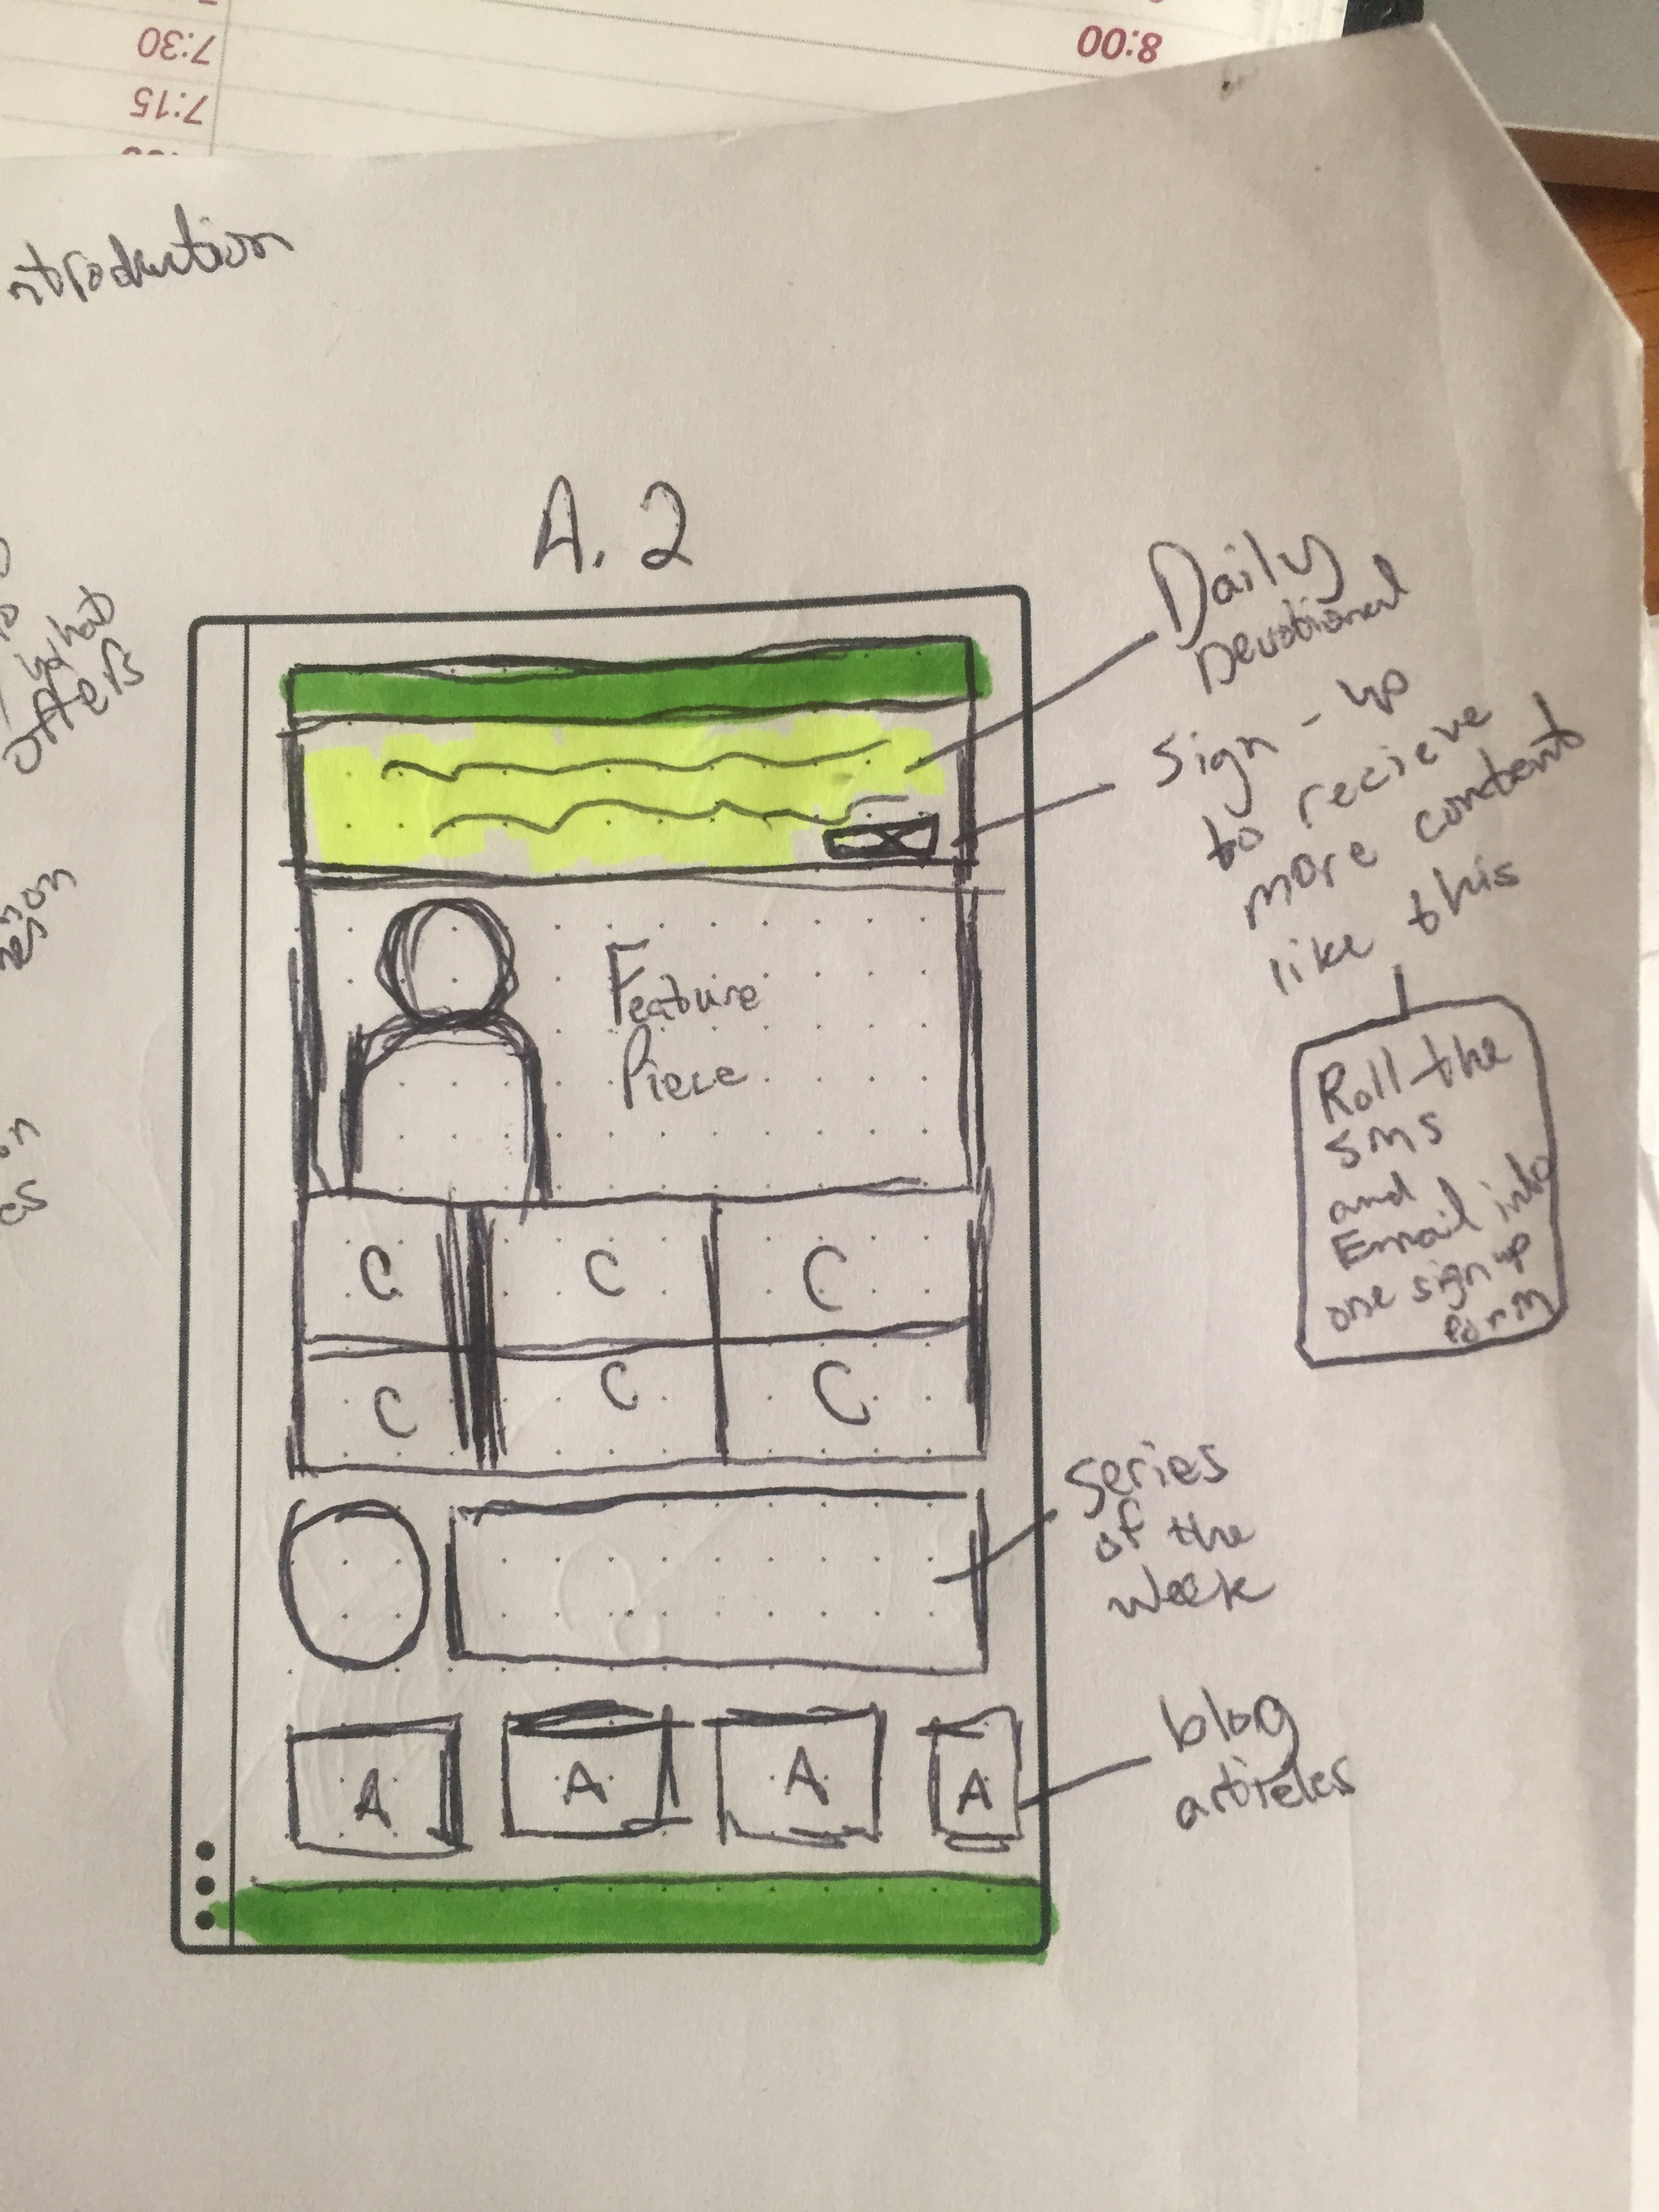 7:30
8:00
7:15
ntroduction
what
offers
A.2
Daily
Devotional
Sign-up
to recieve
more content
like this
Feature
Piece
Roll the
SMS
and
Email into
one sign up
form
C C C
C C C
Series
of the
week
A A A A
blog
articles